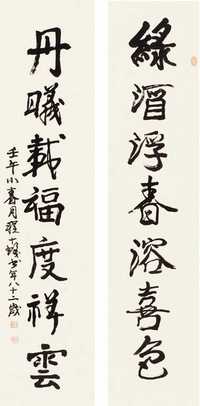 綠酒浮春溶喜色
丹曦載福度祥雲
壬午小春月程十髮書年八十二歲